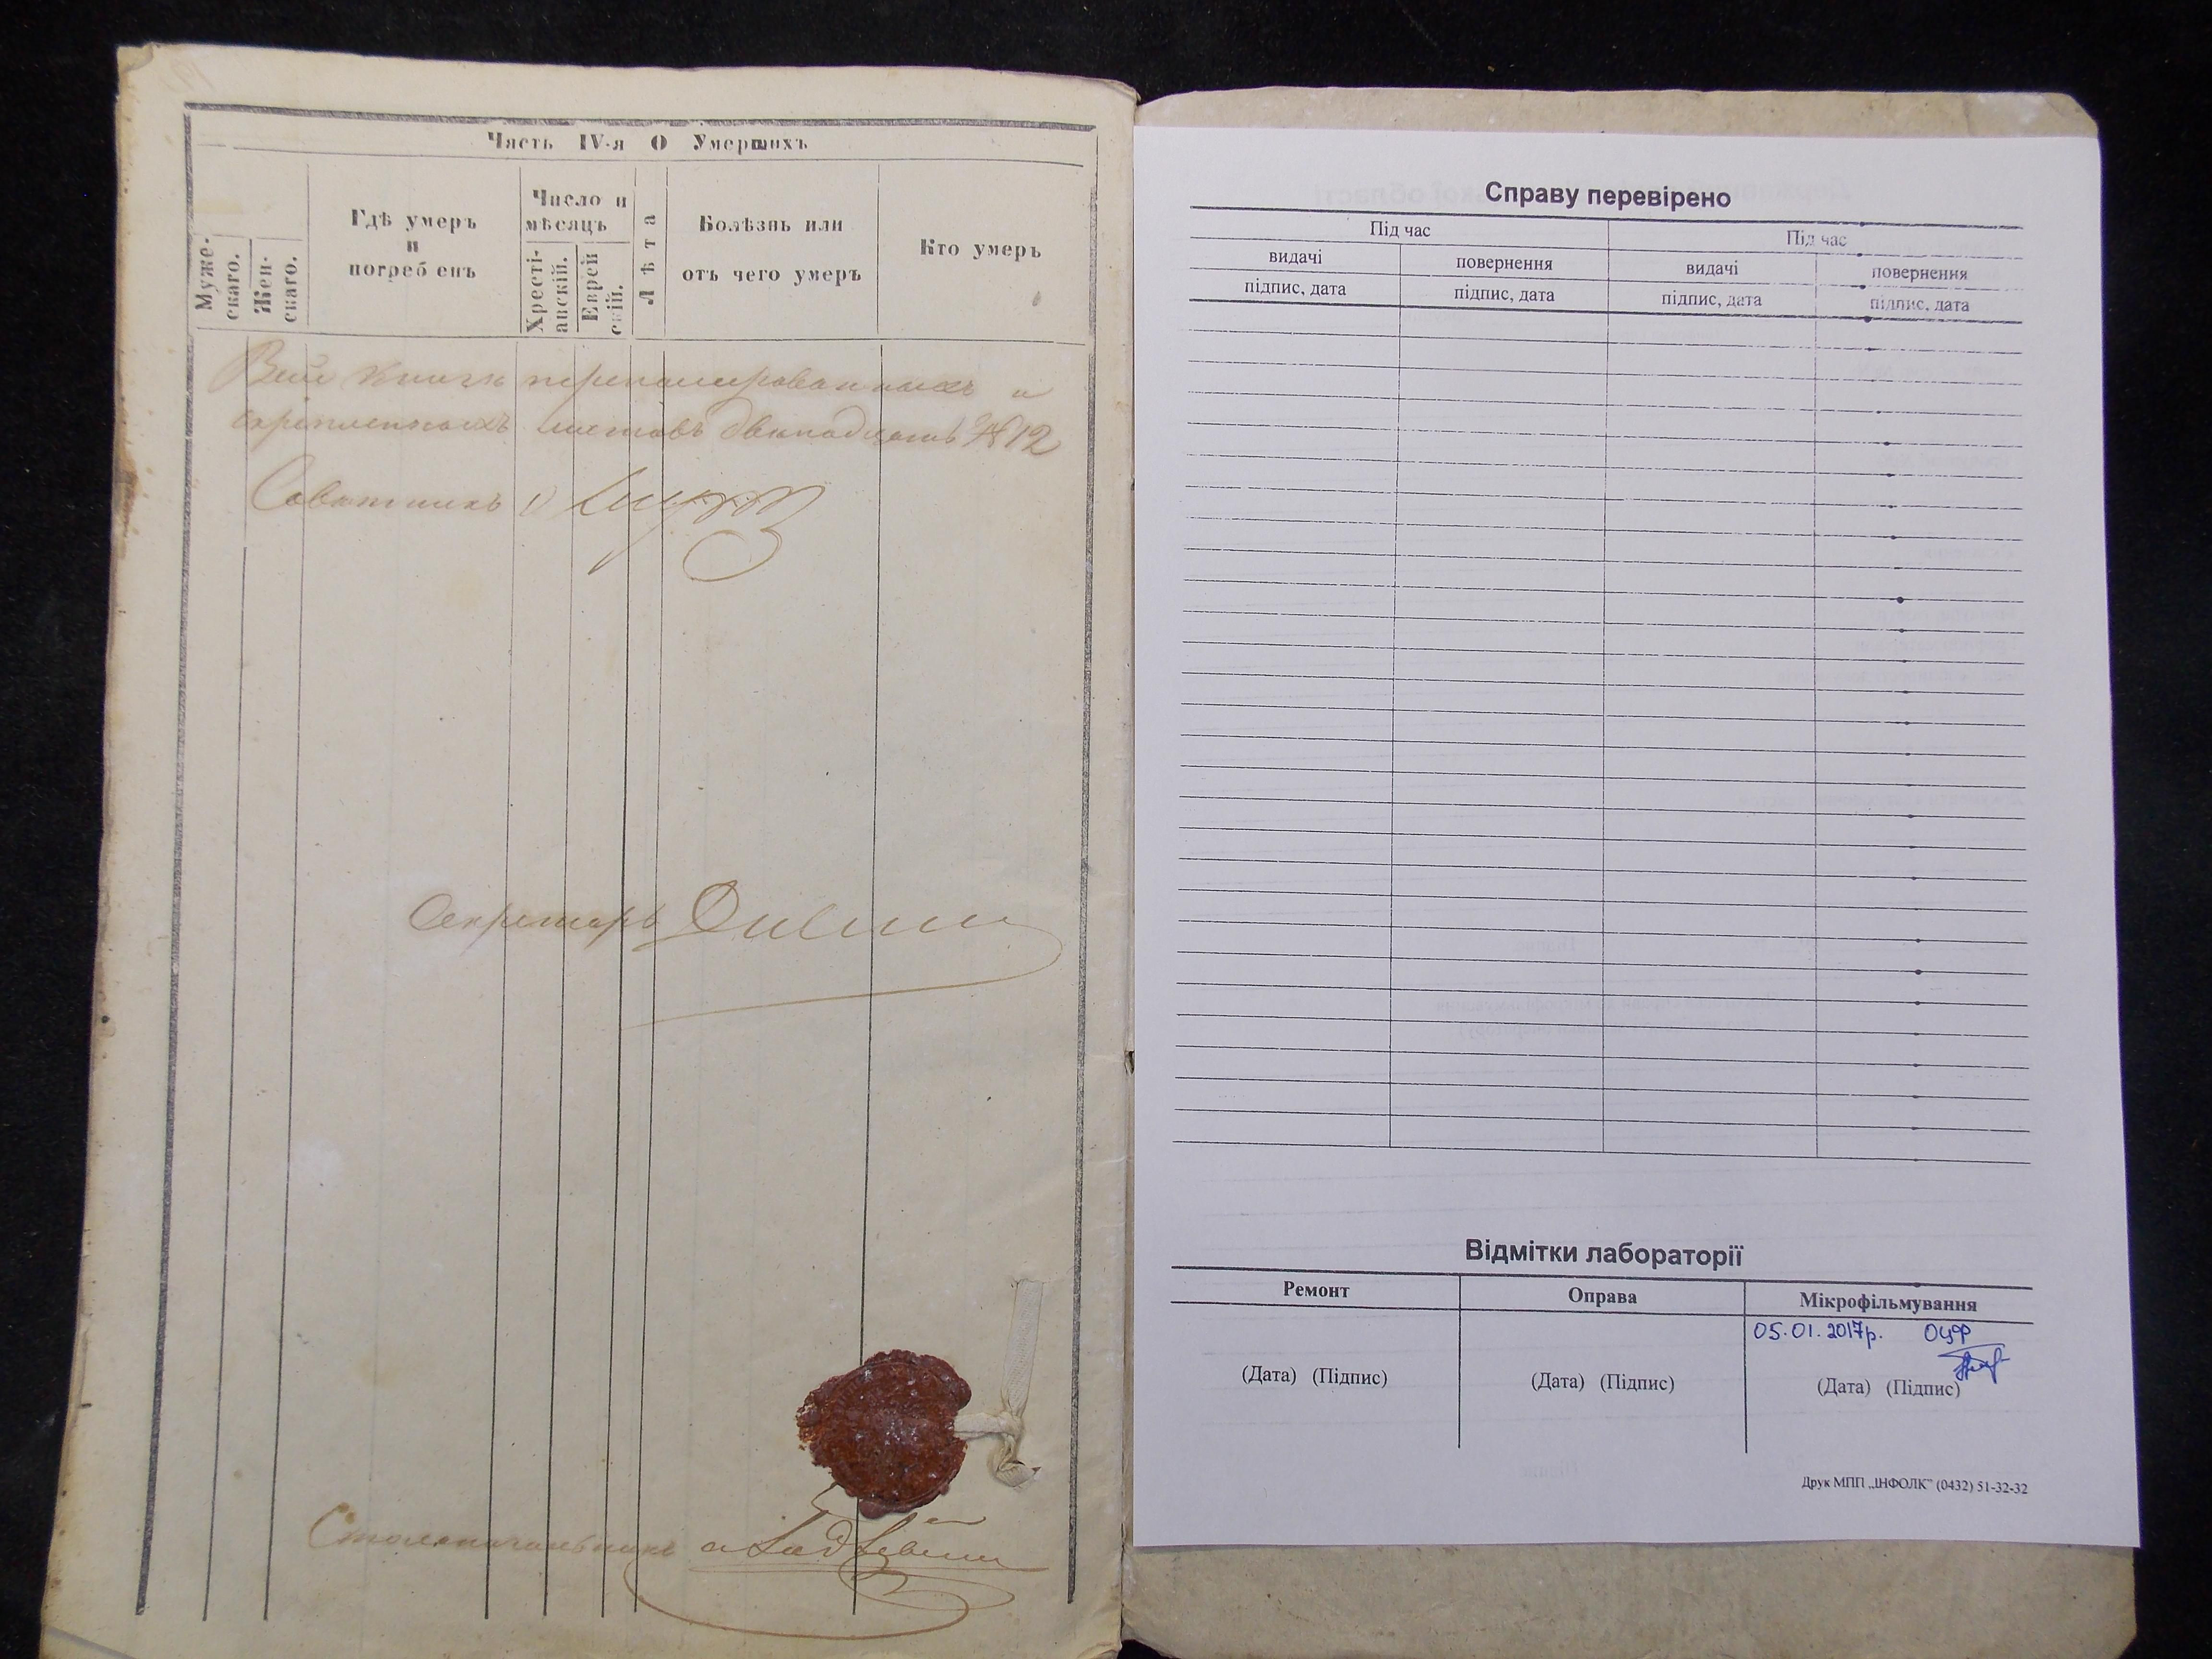 Часть IV-я О Умершихъ
Муже-
скаго.
Жен-
скаго.
Гдѣ умеръ
и
погребенъ
Число и
мѣсяцъ
Хресті-
анскій.
Еврей
скій.
Лѣта
Болѣзнь или
отъ чего умеръ
Кто умеръ
Всей книгѣ перенумерованныхъ и
скрѣпленныхъ листовъ двѣнадцать № 12
Совѣтникъ
Секретарь
Столоначальникъ
Справу перевірено
Під час
Під час
видачі
повернення
видачі
повернення
підпис, дата
підпис, дата
підпис, дата
підпис, дата
Відмітки лабораторії
Ремонт
Оправа
Мікрофільмування
05.01.2017р. ОЦФ
(Дата) (Підпис)
(Дата) (Підпис)
(Дата) (Підпис)
Друк МПП „ІНФОЛК" (0432) 51-32-32